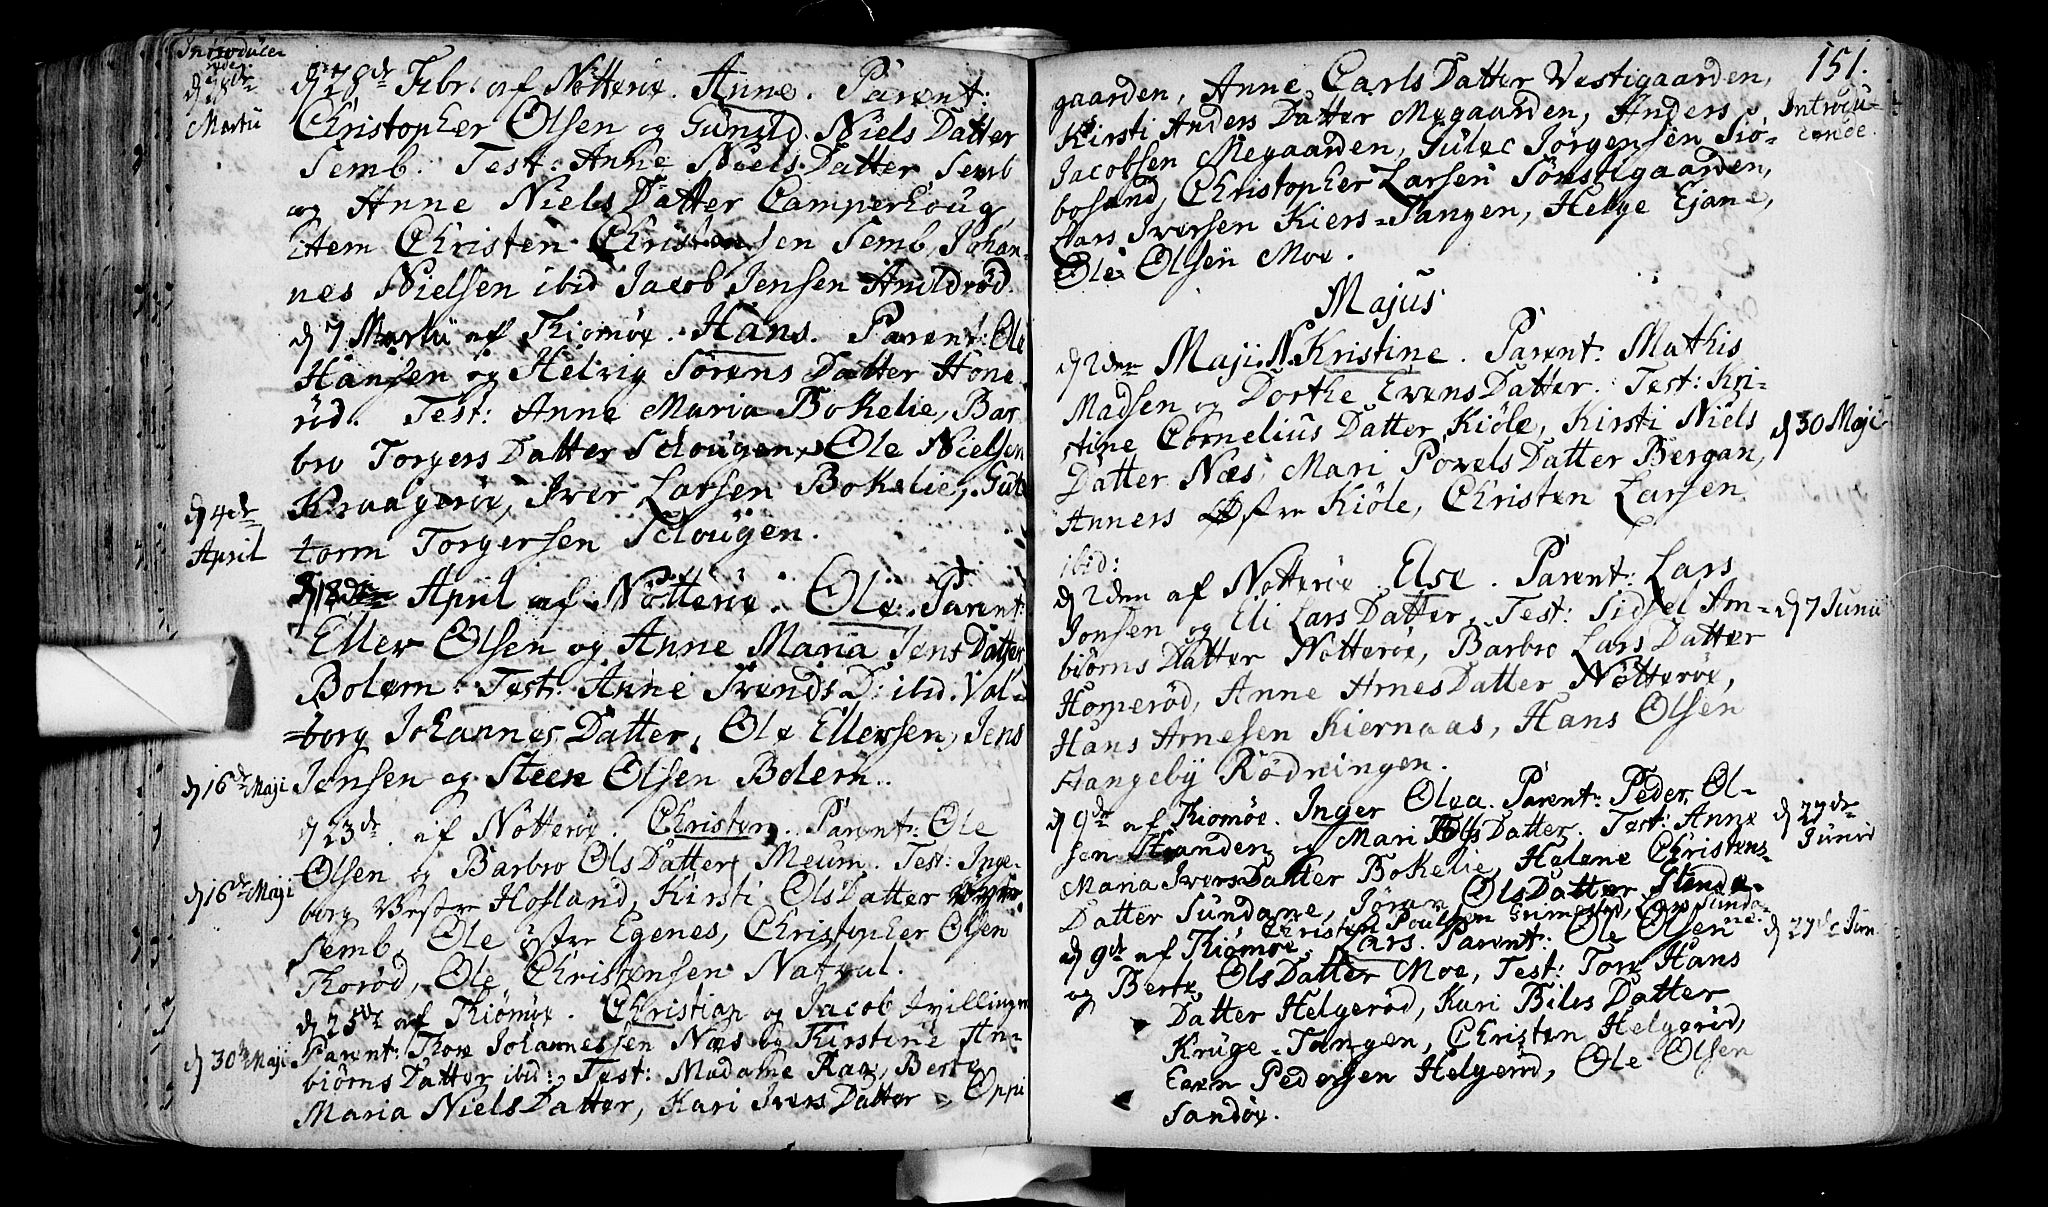 Introducer
d 28de
Martii
d 28de Febr. af Nötteröe. Anne. Parent:
Christopher Olsen og Gunild Niels Datter
Semb. Test: Anne Niels Datter Semb
og Anne Niels Datter Camperhoug,
Item Christen Christensen Semb, Johan-
nes Nielsen ibid Jacob Jensen
d 7 Martii af Thiomöe. Hans. Parent: Ole
Hansen og Helvig Sörens Datter Hone
röd. Test: Anne Maria Bokelie, Bar
bro Torgers Datter Schougen, Ole Nielsen
Kraageröe, Iver Larsen Bokelie, Gut
torm Torgersen Schougen.
d 4de
April
d 18de April af Nötteröe. Ole. Parent:
Ellev Olsen og Anne Maria Jens Datter
Bolern. Test: Anne Svends D: ibid. Val-
borg Johannes Datter, Ole Ellevsen, Jens
Jensen og Steen Olsen Bolern.
d 16de Maji
d 23de af Nötteröe. Christen. Parent: Ole
Olsen og Barbro Ols Datter Meum. Test: Inge-
borg Vestre Hofland, Kirsti Ols Datter
Semb, Ole östre Egenes, Christopher Olsen
Thoröd, Ole Christensen Natvul.
d 16de Maji
d 25de af Thiömöe. Christian og Jacob Tvillinger
Parent: Thore Johannessen Næs og Kirstine An-
biörns Datter ibid: Test: Madame Ras, Berte
Maria Niels Datter, Kari Ivers Datter Oppi
d 30de Maji
151.
Introdu-
cende
gaarden, Anne Carls Datter Vestigaarden,
Kirsti Anders Datter Megaarden, Anders
Jacobsen Megaarden, Gulec Jörgensen Siö-
bosund, Christopher Larsen Sönstigaarden,
Lars Iversen Kiers-Tangen, Helge Ejane,
Ole Olsen Moe.
Majus
d 2den Maji. N. Kristine. Parent: Mathis
Madsen og Dorthe Evens Datter. Test: Kri-
stine Cornelius Datter Kiöle, Kirsti Niels
Datter Næs, Mari Povels Datter Bergan,
Anners Östre Kiöle, Christen Larsen
ibid:
d 30 Maji
d 2den af Nötteröe. Else. Parent: Lars
Jonsen og Eli Lars Datter. Test: Sidsel Am-
biörns Datter Nötteröe, Barbro Lars Datter
Homeröd, Anne Arnes Datter Nötteröe,
Hans Arnesen Kiernaas, Hans Olsen
Stangeby Rödningen.
d 7 Junii
d 9de af Thiomöe. Inger Olea. Parent: Peder Ol-
sen Stranden og Mari Ols Datter. Test: Anne
Maria Ivers Datter Bokelie, Helene Christens-
Datter Sundane, Jöran Ols Datter
Christen Poulsen Grimestad, Lars Sunda-
ne.
d 27de
Junii
d 9de af Thiömöe. Lars. Parent: Ole Olsen
og Berte Ols Datter Moe, Test: Tore Hans
Datter Helgeröd, Kari Niels Datter
Kruge-Tangen, Christen Helgeröd,
Even Pedersen Helgeröd, Ole Olsen
Sandöe.
d 27de Jun